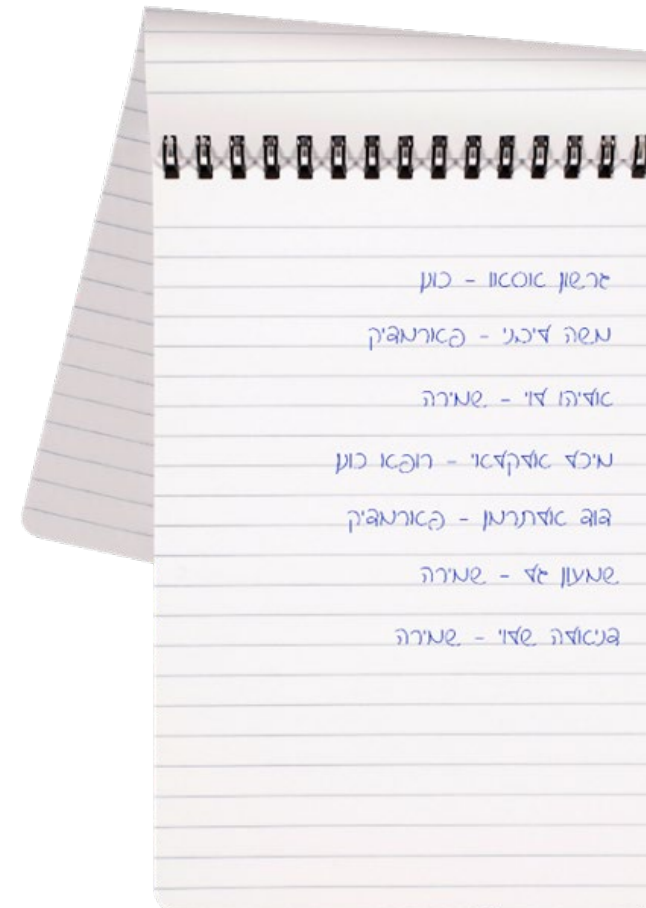 גרשון אוסאו - כונן
משה ליבני - פאורמדיק
אליהו לוי - שמירה
מיכל אלקלאי - רופא כונן
דוד אלתרמן - פאורמדיק
שמעון גל - שמירה
דניאלה שלוי - שמירה